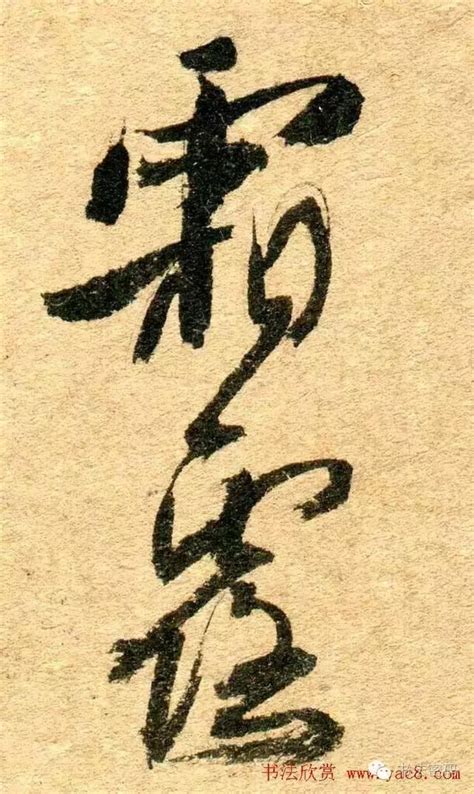 霜
露
书法欣赏 www.yac8.com